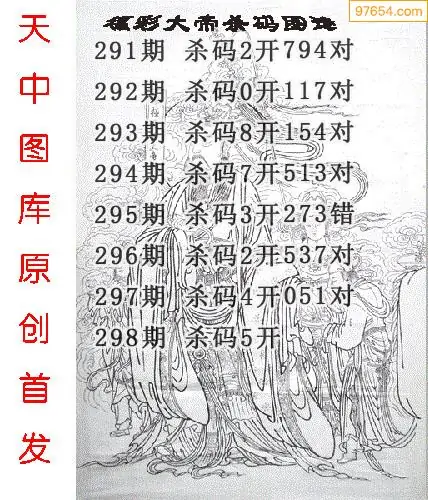 97654.com
福彩大帝杀码图谜
291期 杀码2开794对
292期 杀码0开117对
293期 杀码8开154对
294期 杀码7开513对
295期 杀码3开273错
296期 杀码2开537对
297期 杀码4开051对
298期 杀码5开
天中图库原创首发